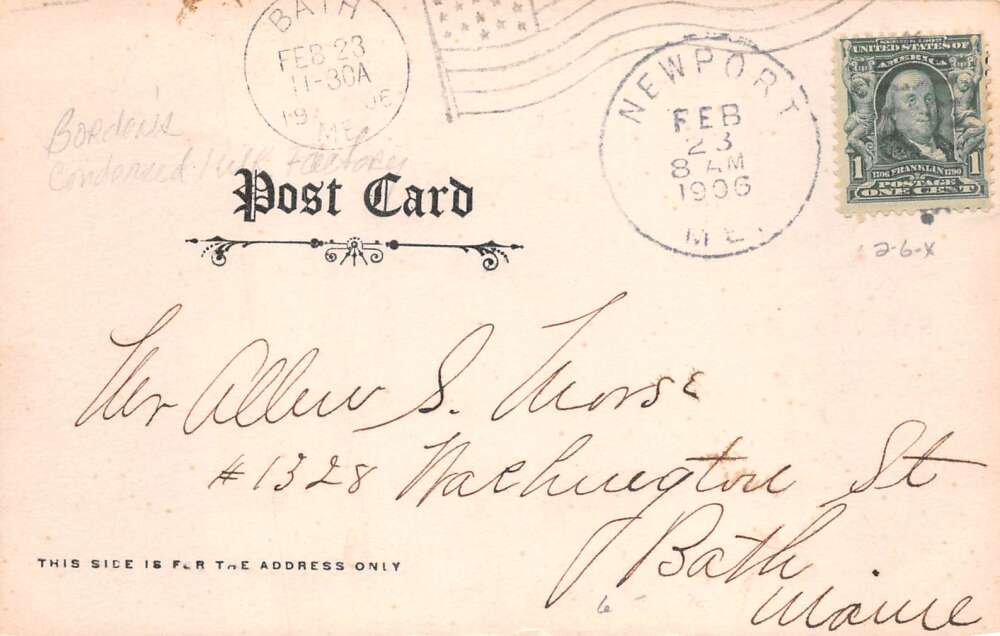 BATH
FEB 23
11-30A
19 06
ME
NEWPORT
FEB
23
8 AM
1906
ME.
SERIES 1902
UNITED STATES OF
AMERICA
1 1706 FRANKLIN 1790 1
POSTAGE
ONE CENT
Borden's
Condensed Milk Factory
Post Card
2-6-X
Mr Allen S. Morse
#1328 Washington St
Bath
Maine
THIS SIDE IS FOR THE ADDRESS ONLY
6